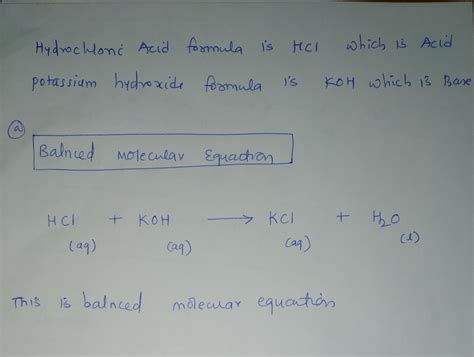 Hydrochloric Acid formula is HCl which is Acid
potassium hydroxide formula is KOH which is Base
ⓐ
Balnced molecular Equaction
HCl + KOH → KCl + H₂O
(aq) (aq) (aq) (l)
This is balnced molecular equation